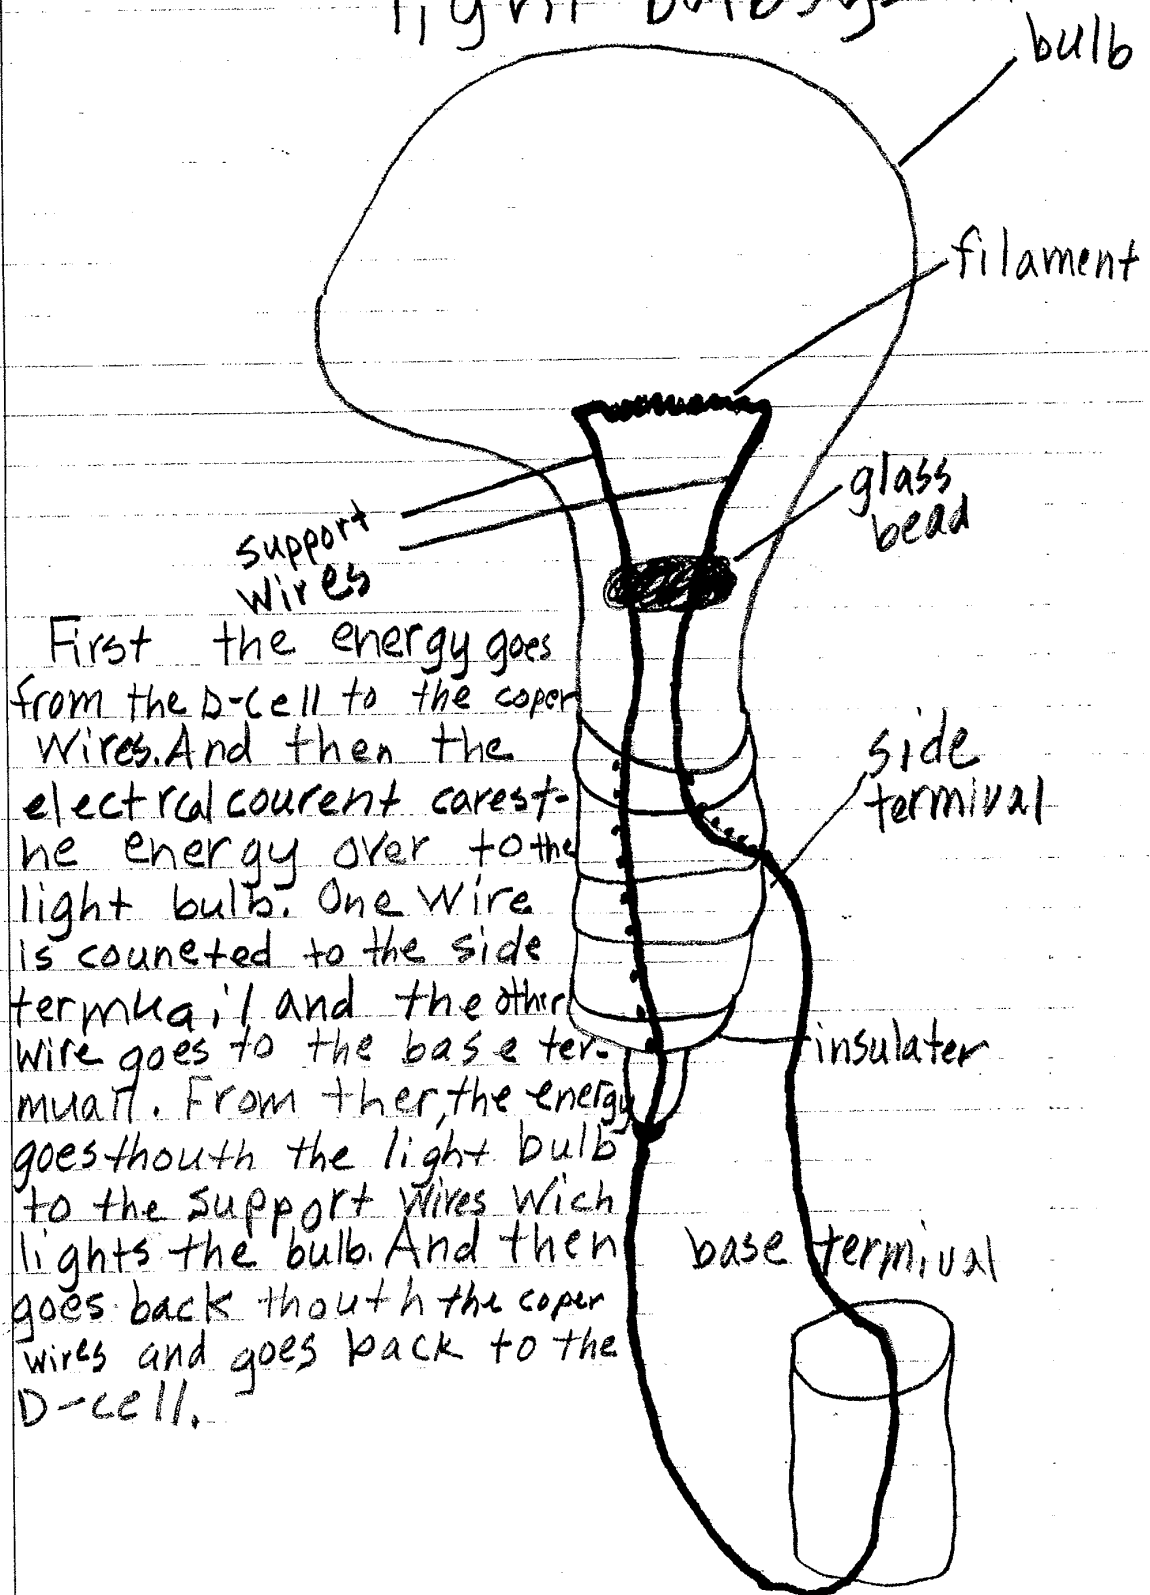 light bulbs
bulb
filament
glass
bead
support
wires
First the energy goes
from the D-cell to the coper
wires. And then the
electrcal courent carest-
he energy over to the
light bulb. One wire
is couneted to the side
termuail and the other
wire goes to the base ter-
muail. From ther, the energy
goes thouth the light bulb
to the support wires wich
lights the bulb. And then
goes back thouth the coper
wires and goes back to the
D-cell.
side
termival
insulater
base termival